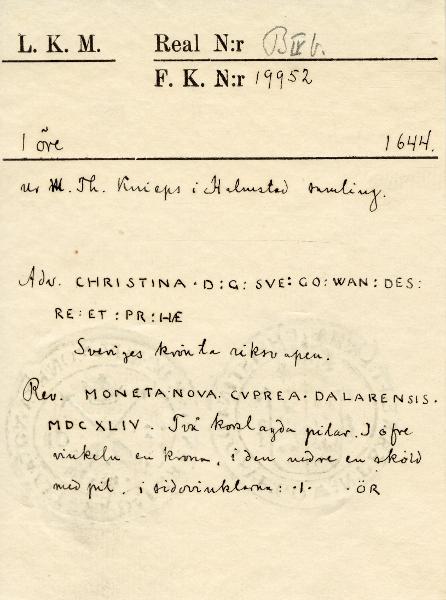 L. K. M. Real N:r B IV b.
F. K. N:r 19952
1 öre 1644.
ur M. Th. Knieps i Halmstad samling.
Adv. CHRISTINA · D : G : SVE : GO : WAN : DES :
RE : ET : PR : HÆ
Sveriges krönta riksvapen.
Rev. MONETA NOVA. CVPREA · DALARENSIS.
MDCXLIV. Två korslagda pilar. I öfre
vinkeln en krona, i den nedre en sköld
med pil, i sidovinklarna: · 1 · · ÖR